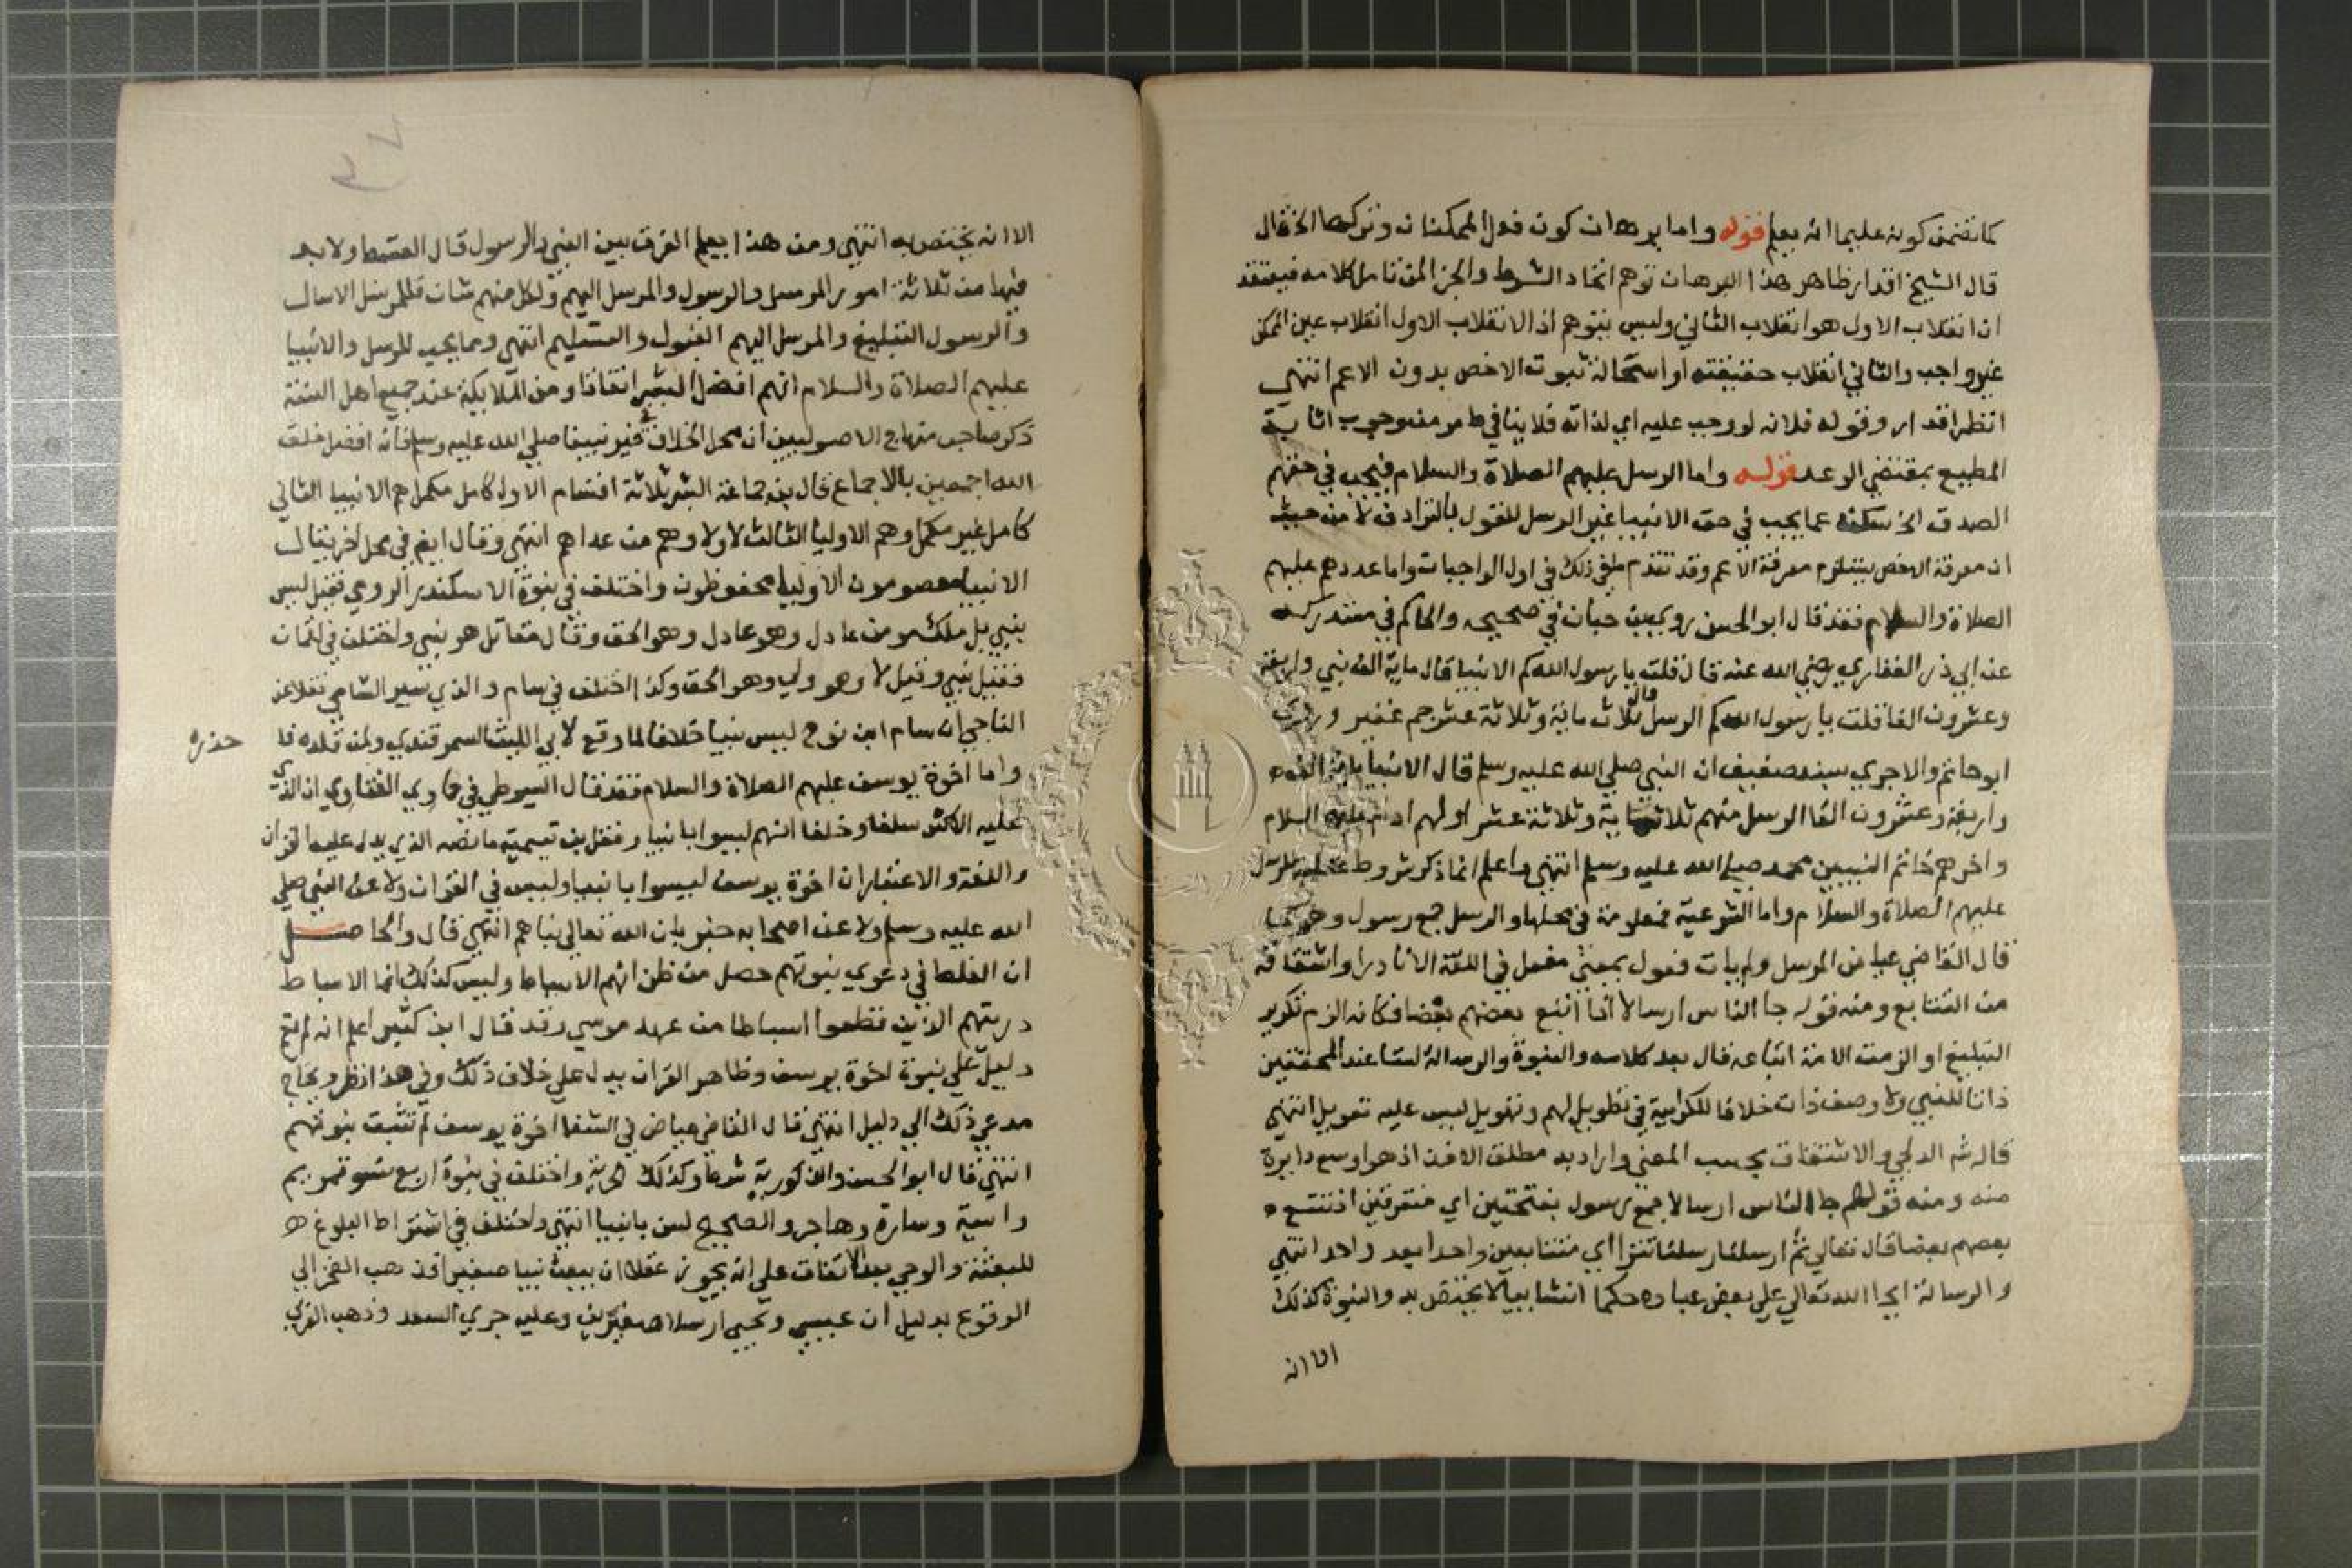 كما تضمن كونه عليما انه يعلم قوله واما برهان كون فعل الممكنات وتركها الخ قال
قال الشيخ اقدار ظاهر هذا البرهان توهم اتحاد الشرط والجزا لمن تامل كلامه فيعتقد
ان انقلاب الاول هو انقلاب الثاني وليس بتوهم اذ الانقلاب الاول انقلاب عين الممكن
غير واجب والثاني انقلاب حقيقته او استحالة ثبوت الاخص بدون الاعم انتهى
انظر اقدار وقوله فلانه لو وجب عليه اي لذاته فلا ينافي ما مر من وجوب اثابة
المطيع بمقتضي الوعد قوله واما الرسل عليهم الصلاة والسلام فيجب في حقهم
الصدق الخ سكت عما يجب في حق الانبيا غير الرسل للقول بالترادف لا من حيث
ان معرفة الاخص يستلزم معرفة الاعم وقد تقدم ما في ذلك في اول الواجبات واما عددهم عليهم
الصلاة والسلام فقد قال ابو الحسن روي ابن حبان في صحيحه والحاكم في مستدركه
عن ابي ذر الغفاري رضي الله عنه قال قلت يا رسول الله كم الانبيا قال ماية الف نبي واربعة
وعشرون الفا قلت يا رسول الله كم الرسل قال ثلاث ماية وثلاثة عشر جم غفير وروي
ابو حاتم والاجري بسند ضعيف ان النبي صلي الله عليه وسلم قال الانبيا ماية الف
واربعة وعشرون الفا الرسل منهم ثلاثماية وثلاثة عشر اولهم ادم عليه السلام
واخرهم خاتم النبيين محمد صلي الله عليه وسلم انتهي واعلم انما ذكر شروط عقلية للرسل
عليهم الصلاة والسلام واما الشرعية فمعلومة في محلها والرسل جمع رسول وهو كما
قال القاضي عياض المرسل ولم يات فعول بمعني مفعل في اللغة الا نادرا واشتقاقه
من التتابع ومنه قوله جا الناس ارسالا اذا اتبع بعضهم بعضا فكانه الزم تكرير
التبليغ او الزمت الامة اتباعه قال بعد كلامه والنبوة والرسالة ليستا عند المحققين
ذاتا للنبي ولا وصف ذات خلافا للكرامية في تطويل لهم وتهويل ليس عليه تعويل انتهي
قاله ثم الدلجي والاشتقاق بحسب المعني واراد به مطلق الاخذ اذ هو اوسع دايرة
منه ومنه قولهم جا الناس ارسالا جمع رسول بفتحتين اي متفرقين اذ نتبع
بعضهم بعضا قال تعالي ثم ارسلنا رسلنا تترا اي متتابعين واحدا بعد واحد انتهي
والرسالة ايحا الله تعالي علي بعض عباده حكما انشاييا لا يختص به والنبوة كذلك
الا انه
الا انه يختص به انتهي ومن هذا يعلم الفرق بين النبي والرسول قال القسط ولا بد
فيها من ثلاثة امور المرسل والرسول والمرسل اليهم ولكل منهم شان فللمرسل الارسال
والرسول التبليغ والمرسل اليهم القبول والتسليم انتهي ومما يجب للرسل والانبيا
عليهم الصلاة والسلام انهم افضل البشر اتفاقا ومن الملايكة عند جميع اهل السنة
ذكر صاحب منهاج الاصوليين ان محل الخلاف في غير نبينا صلي الله عليه وسلم فانه افضل خلق
الله اجمعين بالاجماع قال بن جماعة البشر ثلاثة اقسام الاول كامل مكمل هم الانبيا الثاني
كامل غير مكمل وهم الاوليا الثالث لا ولا وهم من عداهم انتهي وقال ايض في محل اخر يقال
الانبيا معصومون الاوليا محفوظون واختلف في نبوة الاسكندر الرومي فقيل ليس
بنبي بل ملك مومن عادل وهو عادل وهو الحق وقال مقاتل هو نبي واختلف في لقمان
فقيل نبي وقيل لا وهو ولي وهو الحق وكذا اختلف في سام والذي سير الشامي نقلا عن
التاجي ان سام ابن نوح ليس نبيا خلافا لما وقع لابي الليث السمرقندي ولمن قلده فا
حذره
واما اخوة يوسف عليهم الصلاة والسلام فقد قال السيوطي في حاوي الفتاوي ان الذي
عليه الاكثر سلفا وخلفا انهم ليسوا بانبيا ونقل بن تيمية ما نصه الذي يدل عليه القران
واللغة والاعتبار ان اخوة يوسف ليسوا بانبيا وليس في القران ولا عن النبي صلي
الله عليه وسلم ولا عن اصحابه خبر بان الله تعالي نباهم انتهي قال والحاصل
ان الغلط في دعوي نبوتهم حصل من ظن انهم الاسباط وليس كذلك انما الاسباط
دريتهم الذين قطعوا اسباطا من عهد موسي وقد قال ابن كثير اعلم انه لم يقم
دليل علي نبوة اخوة يوسف وظاهر القران يدل علي خلاف ذلك وفي هذا نظر ويحتاج
مدعي ذلك الي دليل انتهي قال القاضي عياض في الشفا اخوة يوسف لم تثبت نبوتهم
انتهي قال ابو الحسن والذكورية شرط وكذلك الحرية واختلف في نبوة اربع نسوة مريم
واسية وسارة وهاجر والصحيح لسن بانبيا انتهي واختلف في اشتراط البلوغ
للبعثة والوحي بعد الاتفاق علي انه يجوز عقلا ان يبعث نبيا صغيرا فذهب الفخر الي
الوقوع بدليل ان عيسي ويحيي ارسلا صغيرين وعليه جري السعد وذهب العربي